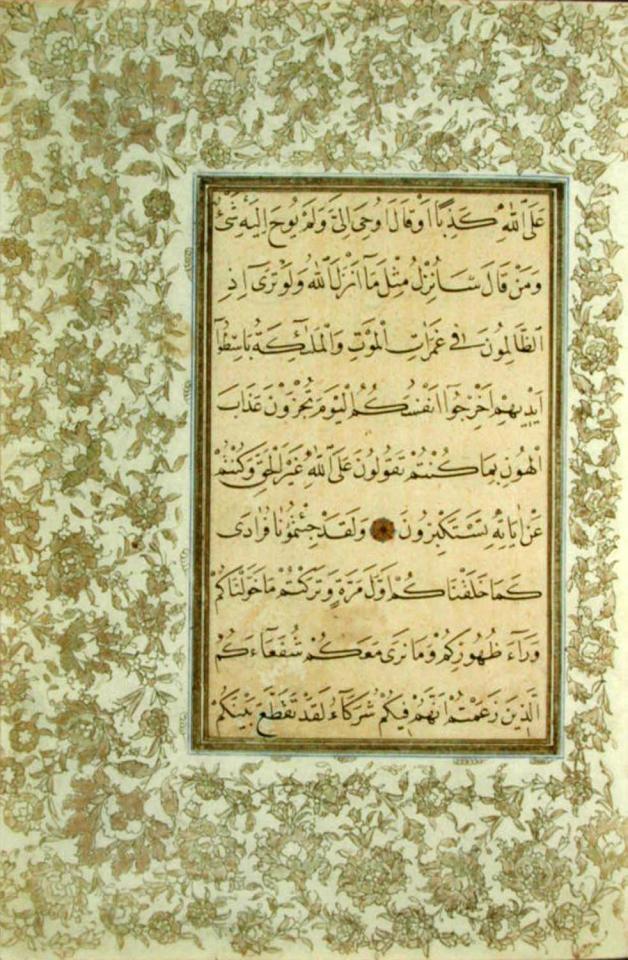 عَلَى اللّٰهِ كَذِبًا اَوْ قَالَ اُوحِىَ اِلَىَّ وَلَمْ يُوحَ اِلَيْهِ شَىْءٌ
وَمَنْ قَالَ سَاُنْزِلُ مِثْلَ مَآ اَنْزَلَ اللّٰهُ وَلَوْ تَرٰٓى اِذِ
الظَّالِمُونَ فٖى غَمَرَاتِ الْمَوْتِ وَالْمَلٰٓئِكَةُ بَاسِطُوٓا
اَيْدٖيهِمْ اَخْرِجُوٓا اَنْفُسَكُمُ اَلْيَوْمَ تُجْزَوْنَ عَذَابَ
الْهُونِ بِمَا كُنْتُمْ تَقُولُونَ عَلَى اللّٰهِ غَيْرَ الْحَقِّ وَكُنْتُمْ
عَنْ اٰيَاتِهٖ تَسْتَكْبِرُونَ وَلَقَدْ جِئْتُمُونَا فُرَادٰى
كَمَا خَلَقْنَاكُمْ اَوَّلَ مَرَّةٍ وَتَرَكْتُمْ مَا خَوَّلْنَاكُمْ
وَرَآءَ ظُهُورِكُمْ وَمَا نَرٰى مَعَكُمْ شُفَعَآءَكُمُ
الَّذٖينَ زَعَمْتُمْ اَنَّهُمْ فٖيكُمْ شُرَكَآءُ لَقَدْ تَقَطَّعَ بَيْنَكُمْ